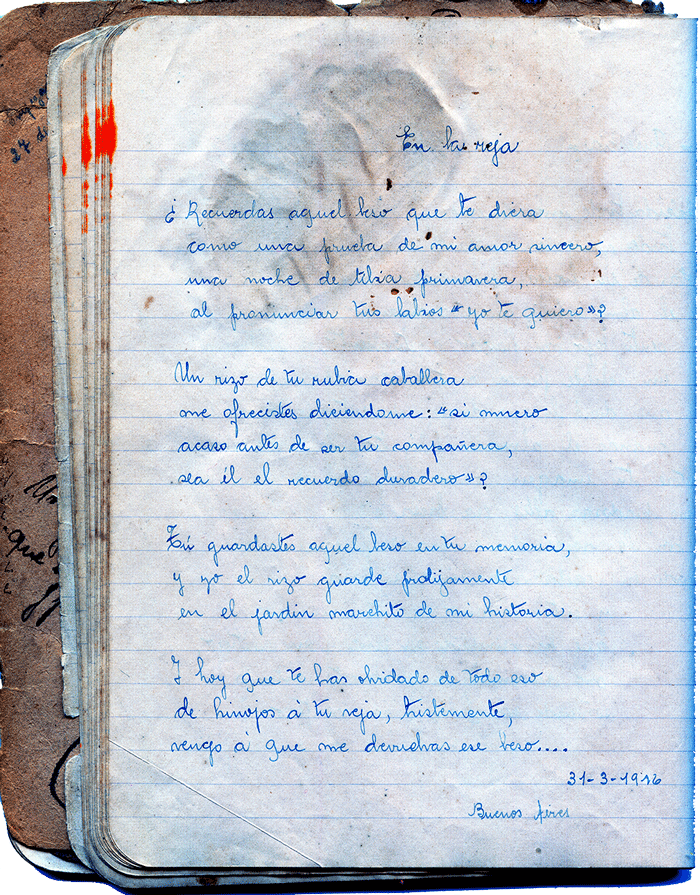 En la reja
¿Recuerdas aquel beso que te diera
como una prueba de mi amor sincero,
una noche de tibia primavera,
al pronunciar tus labios "yo te quiero"?
Un rizo de tu rubia caballera
me ofrecistes diciendome: "si muero
acaso antes de ser tu compañera,
sea él el recuerdo duradero"?
Tú guardastes aquel beso en tu memoria,
y yo el rizo guarde prolijamente
en el jardin marchito de mi historia.
Y hoy que te has olvidado de todo eso
de hinojos á tu reja, tristemente,
vengo á que me devuelvas ese beso....
31-3-1916
Buenos Aires
27 de
que